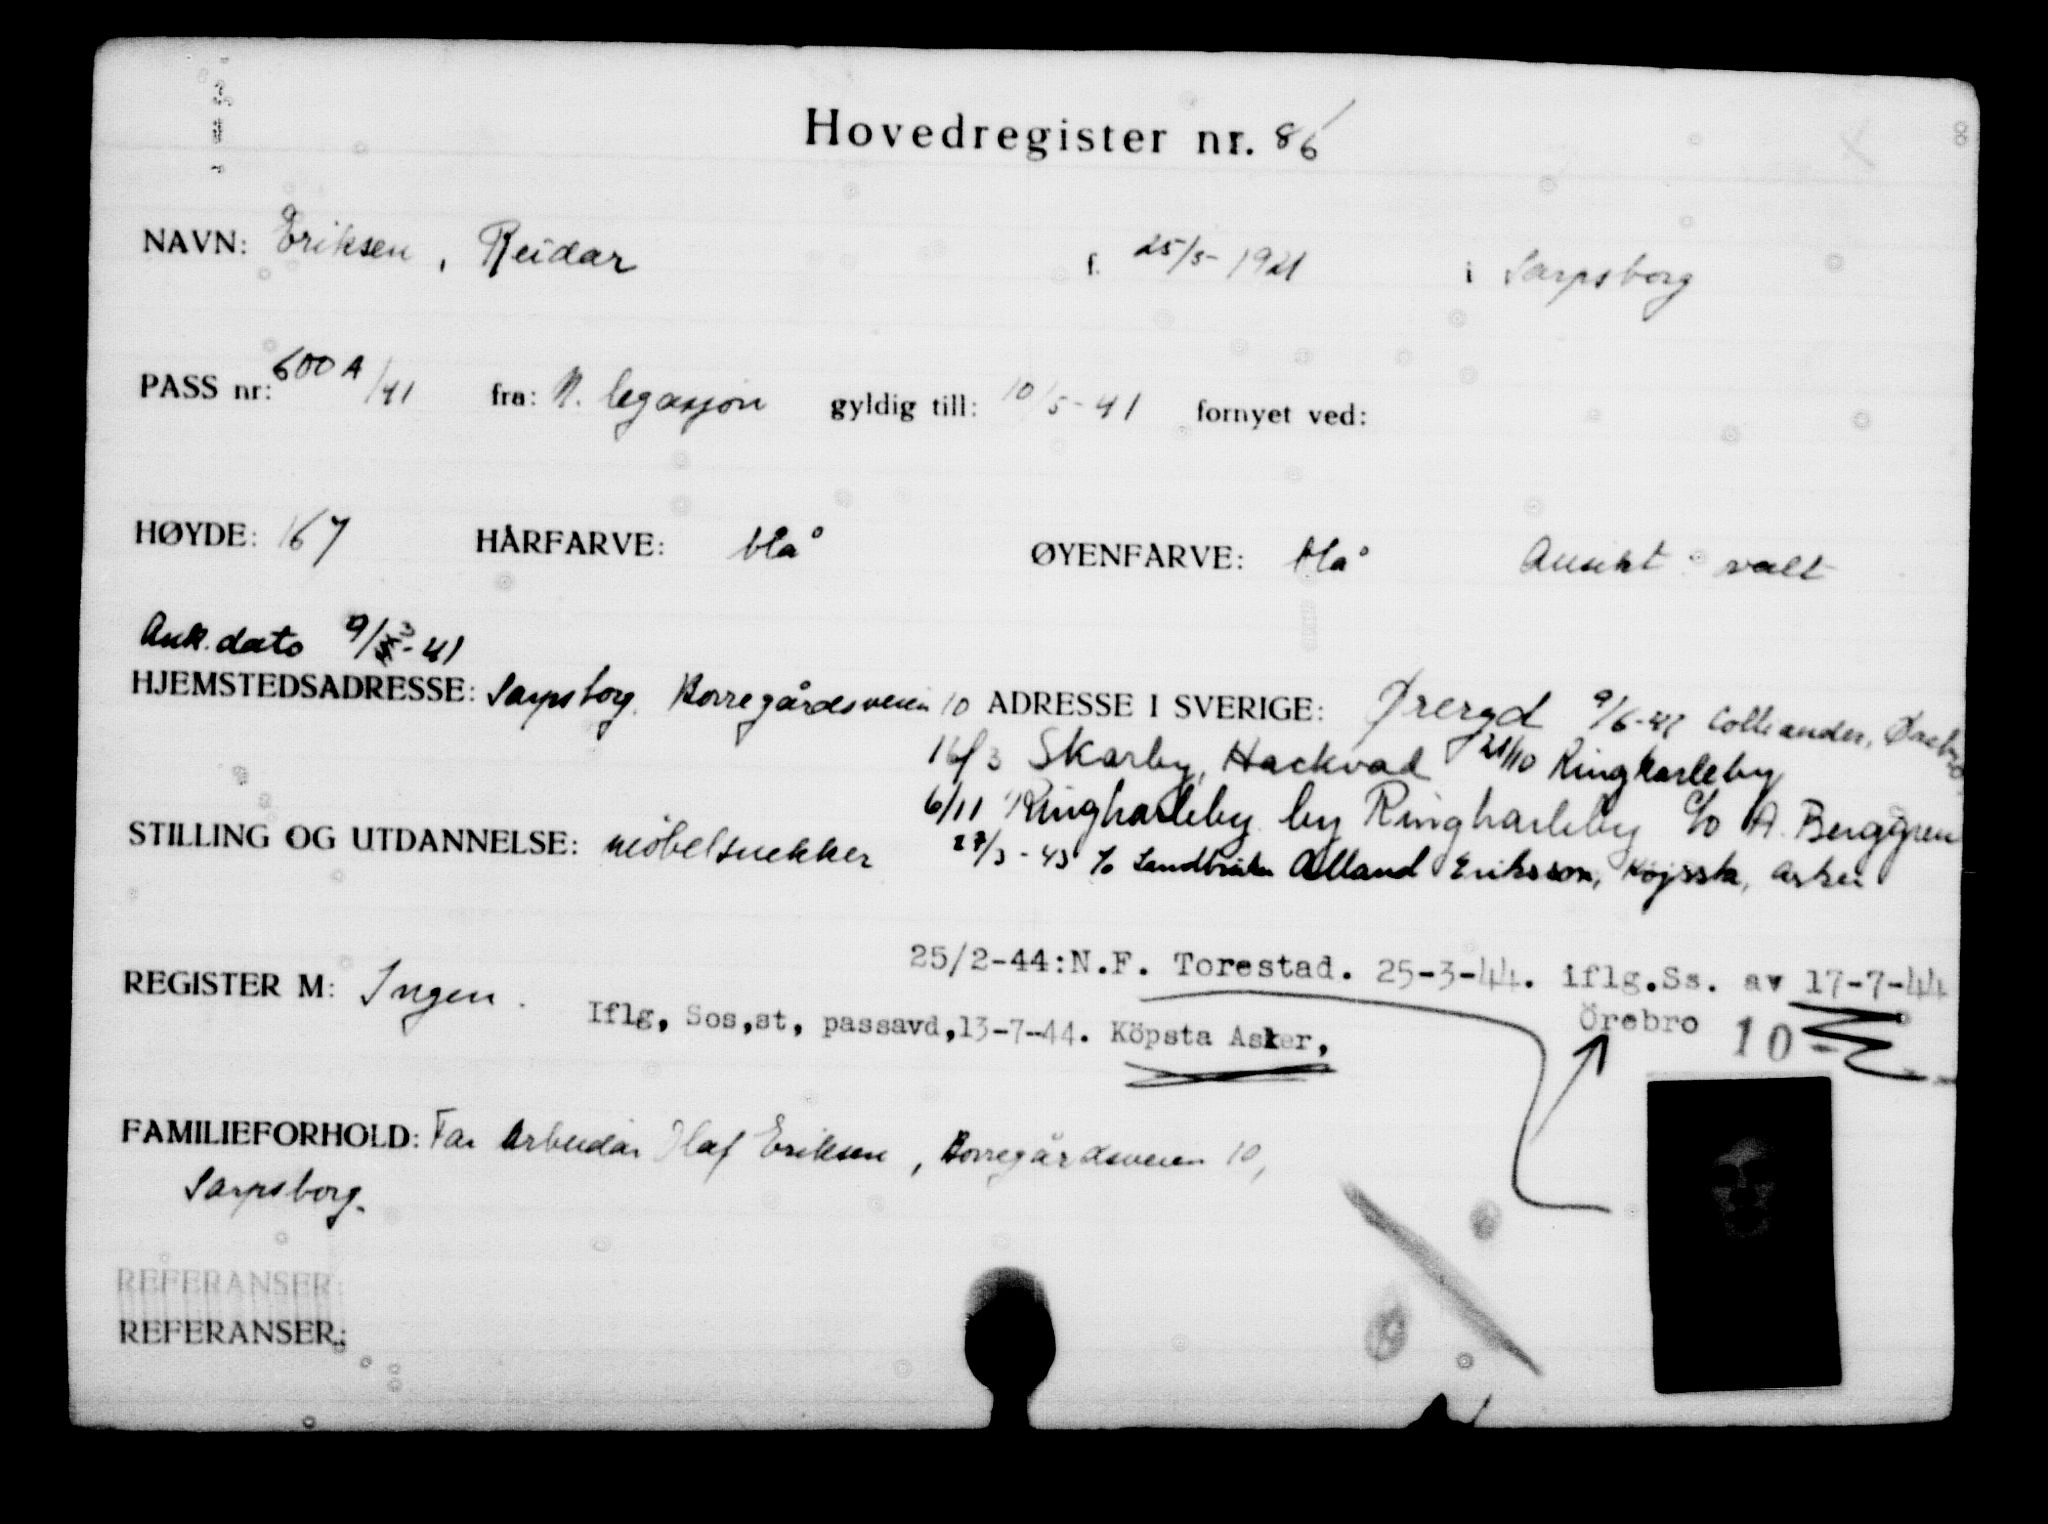 Hovedregister nr. 86
NAVN: Eriksen, Reidar f. 25/5-1921 i Sarpsborg
PASS nr: 600 A/41 fra: N. legasjon gyldig till: 10/5-41 fornyet ved:
HØYDE: 167 HÅRFARVE: blå ØYENFARVE: blå Ansikt: valt
Ank. dato 9/3-41
HJEMSTEDSADRESSE: Sarpsborg. Borregårdsveien 10 ADRESSE I SVERIGE: Øreryd 9/6-42
16/3 Skarby, Hackvad 21/10 Ringkarleby
6/11 Ringkarleby by Ringkarleby c/o A. Berggren
STILLING OG UTDANNELSE: møbelsnekker 27/3-43 c/o Landbruker Alland Eriksson, Asker
25/2-44:N.F. Torestad. 25-3-44. iflg.Ss. av 17-7-44
REGISTER M: Ingen.
Iflg, Sos,st, passavd,13-7-44. Köpsta Asker,
Örebro 10-
FAMILIEFORHOLD: Far Arbeider Olaf Eriksen, Borregårdsveien 10,
Sarpsborg.
REFERANSER:
REFERANSER: